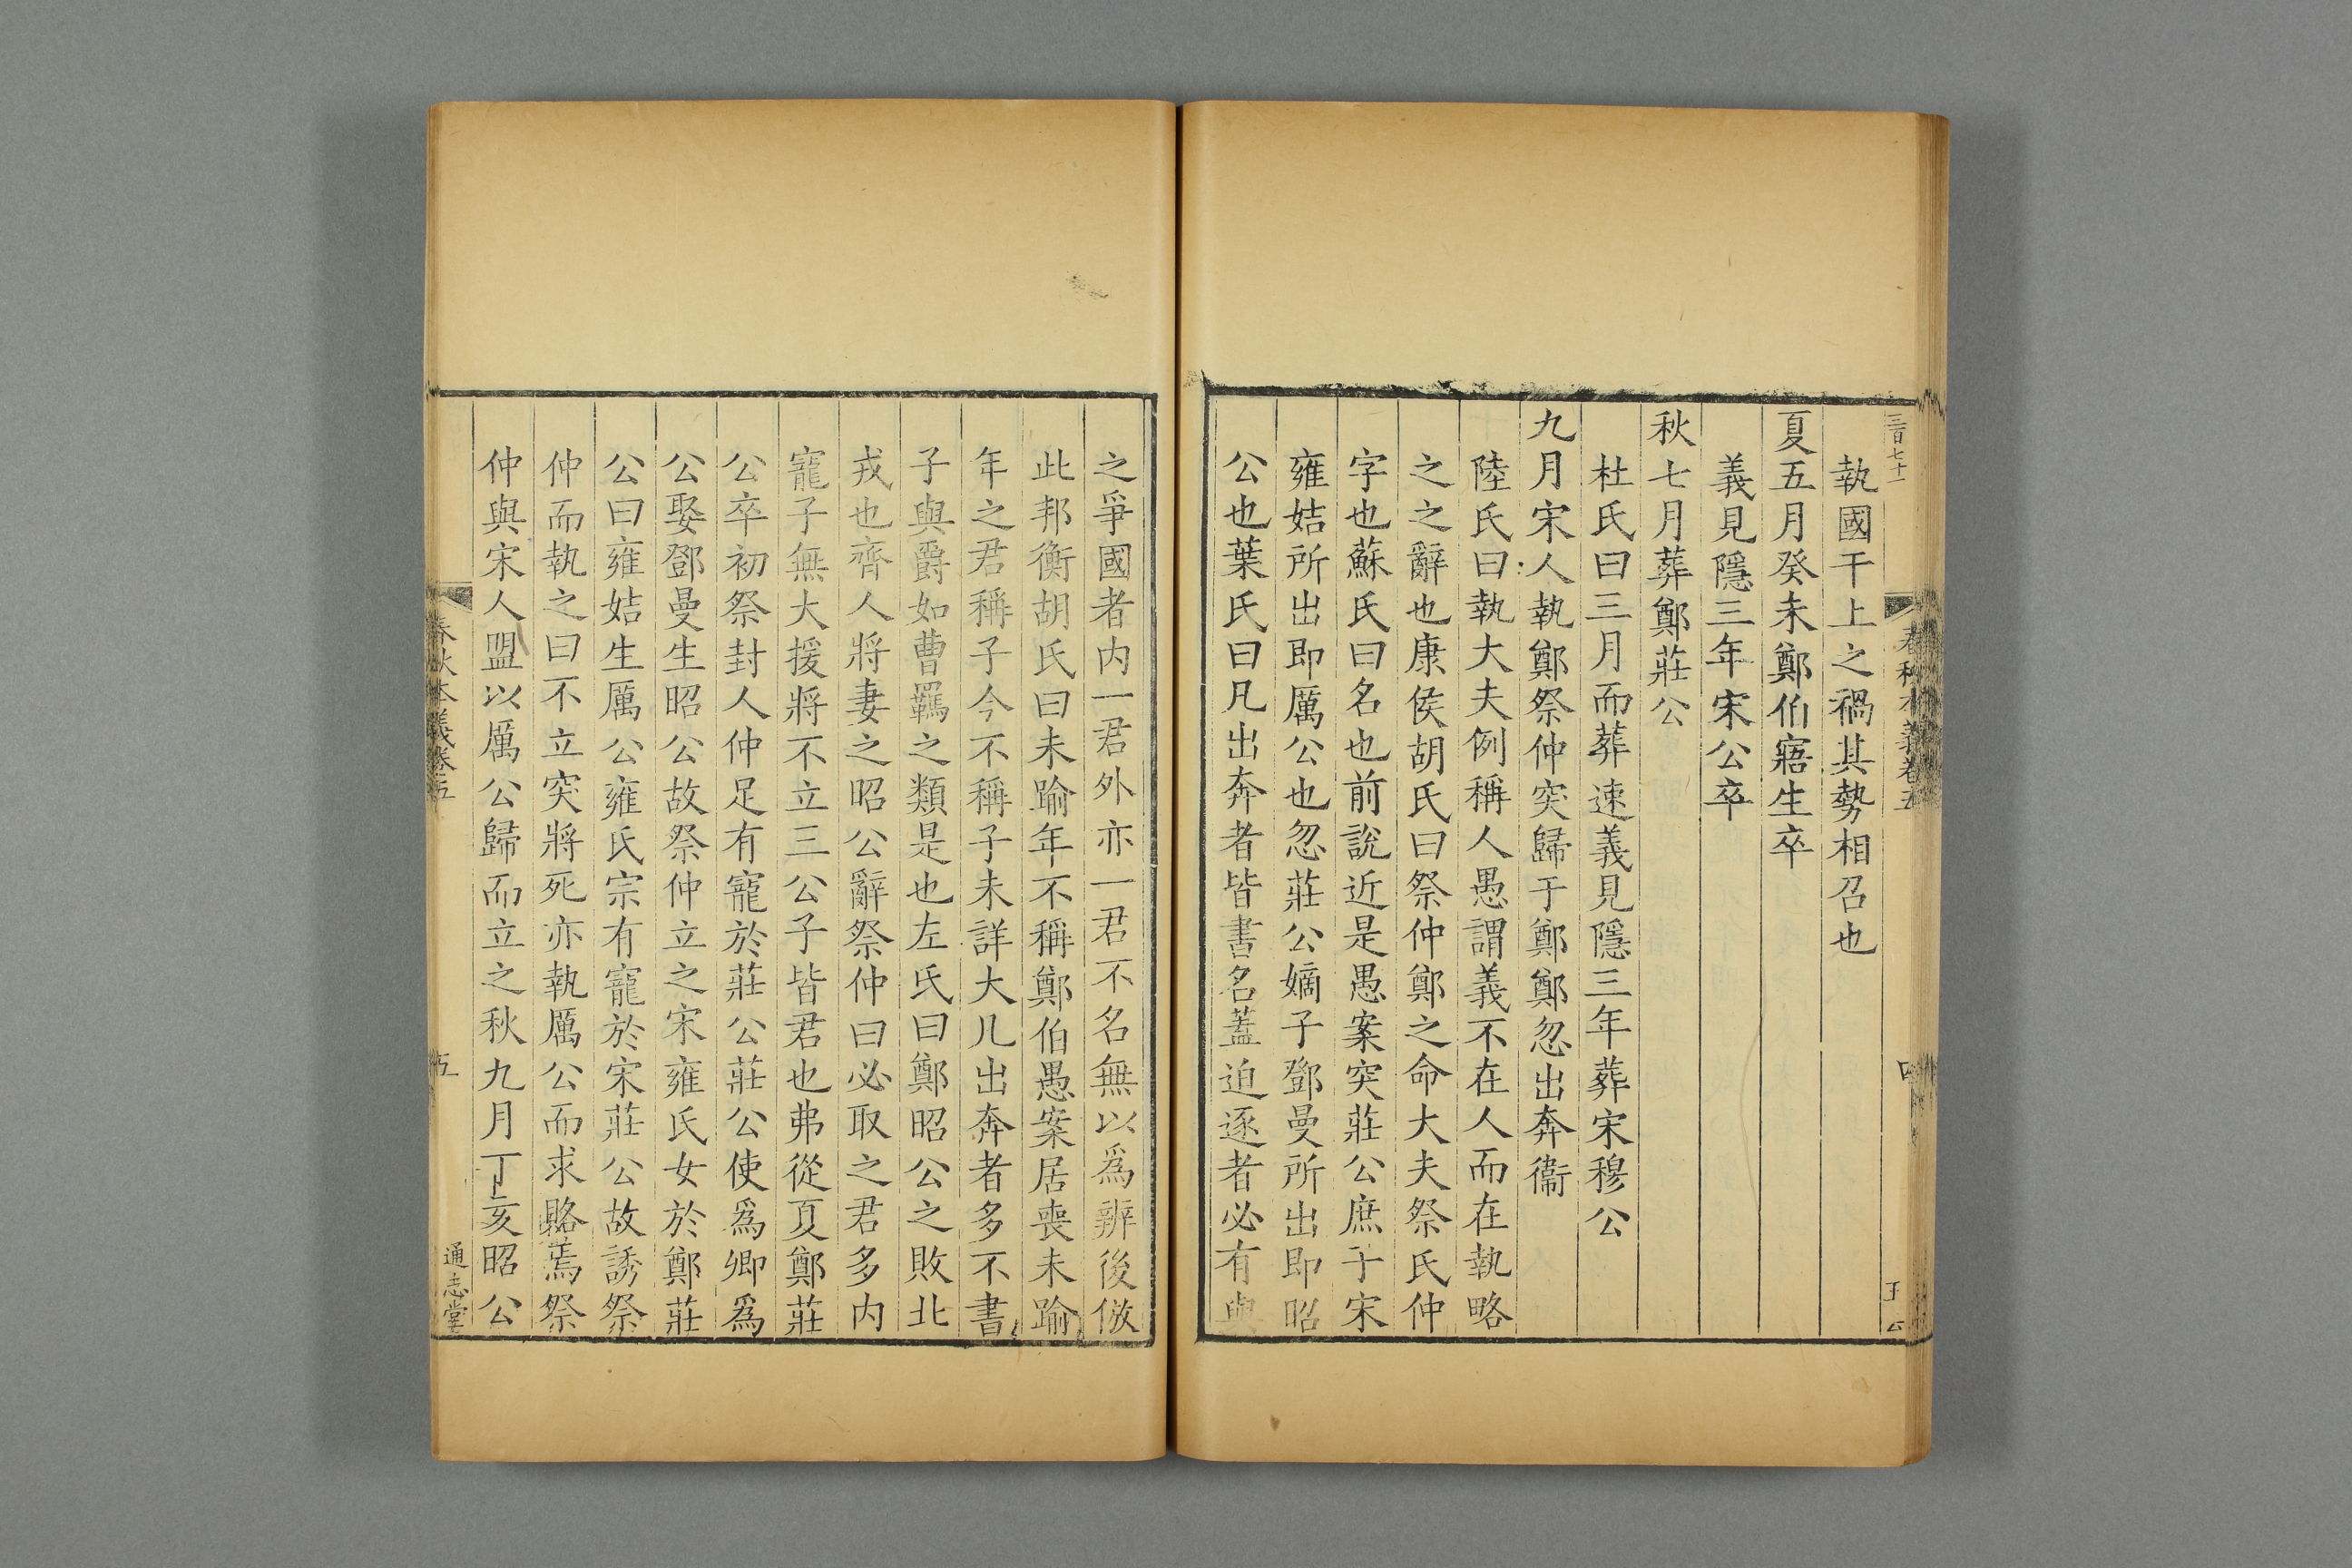 三百七十一
春秋本義卷五
四
執國干上之禍其勢相召也
夏五月癸未鄭伯寤生卒
義見隱三年宋公卒
秋七月葬鄭莊公
杜氏曰三月而葬速義見隱三年葬宋穆公
九月宋人執鄭祭仲突歸于鄭鄭忽出奔衞
陸氏曰執大夫例稱人愚謂義不在人而在執略
之之辭也康侯胡氏曰祭仲鄭之命大夫祭氏仲
字也蘇氏曰名也前說近是愚案突莊公庶子宋
雍姞所出即厲公也忽莊公嫡子鄧曼所出即昭
公也葉氏曰凡出奔者皆書名蓋迫逐者必有與
之爭國者内一君外亦一君不名無以爲辨後倣
此邦衡胡氏曰未踰年不稱鄭伯愚案居喪未踰
年之君稱子今不稱子未詳大凡出奔者多不書
子與爵如曹羈之類是也左氏曰鄭昭公之敗北
戎也齊人將妻之昭公辭祭仲曰必取之君多内
寵子無大援將不立三公子皆君也弗從夏鄭莊
公卒初祭封人仲足有寵於莊公莊公使爲卿爲
公娶鄧曼生昭公故祭仲立之宋雍氏女於鄭莊
公曰雍姞生厲公雍氏宗有寵於宋莊公故誘祭
仲而執之曰不立突將死亦執厲公而求賂焉祭
仲與宋人盟以厲公歸而立之秋九月丁亥昭公
春秋本義卷五
五
通志堂